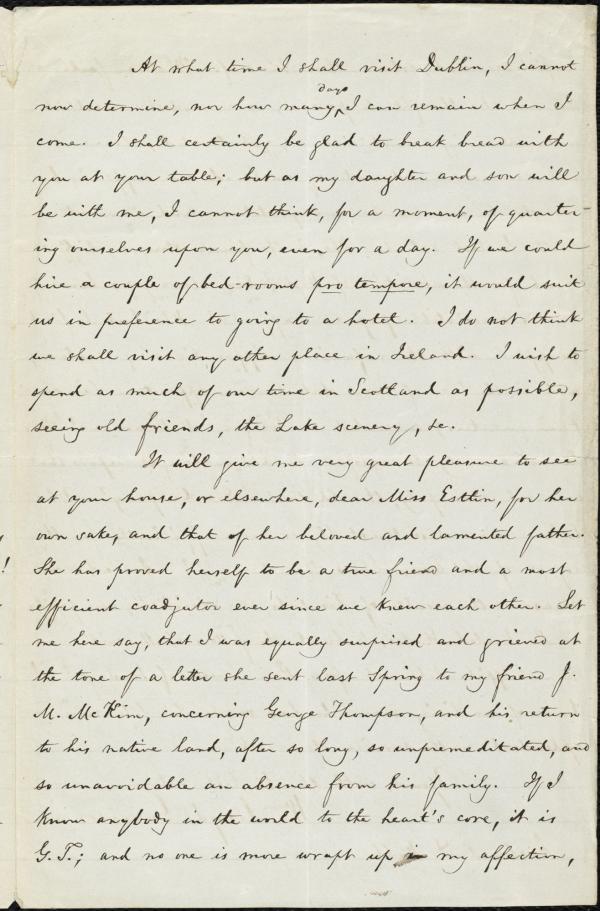 At what time I shall visit Dublin, I cannot
now determine, nor how many days I can remain when I
come. I shall certainly be glad to break bread with
you at your table; but as my daughter and son will
be with me, I cannot think, for a moment, of quarter-
ing ourselves upon you, even for a day. If we could
hire a couple of bed-rooms pro tempore, it would suit
us in preference to going to a hotel. I do not think
we shall visit any other place in Ireland. I wish to
spend as much of our time in Scotland as possible,
seeing old friends, the Lake scenery, &c.
It will give me very great pleasure to see
at your house, or elsewhere, dear Miss Estlin, for her
own sake, and that of her beloved and lamented father.
She has proved herself to be a true friend and a most
efficient coadjutor ever since we knew each other. Let
me here say, that I was equally surprised and grieved at
the tone of a letter she sent last Spring to my friend J.
M. McKim, concerning George Thompson, and his return
to his native land, after so long, so unpremeditated, and
so unavoidable an absence from his family. If I
know anybody in the world to the heart's core, it is
G. T.; and no one is more wrapt up in my affection,
!